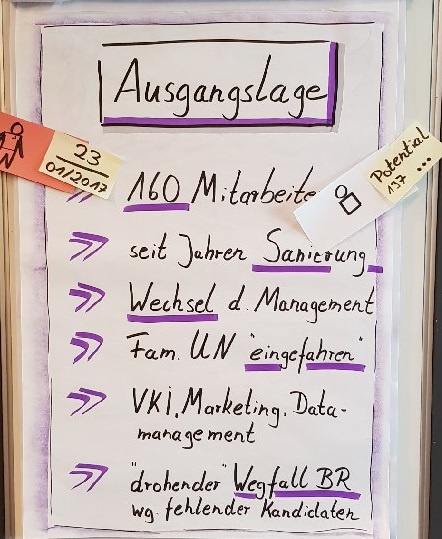 Ausgangslage
23
01/2017
Potential
137 ...
160 Mitarbeite
seit Jahren Sanierung
Wechsel d. Management
Fam. UN "eingefahren"
VKi, Marketing, Data-
management
"drohender" Wegfall BR
wg. fehlender Kandidaten